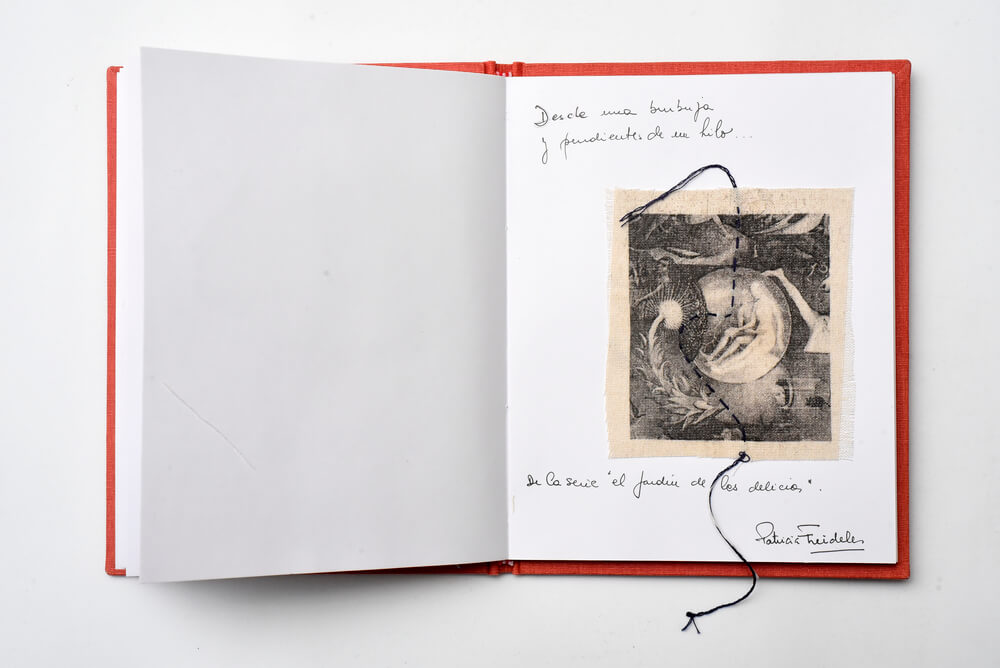 Desde una burbuja
y pendientes de un hilo...
De la serie "el jardín de las delicias".
Patricia Freideles